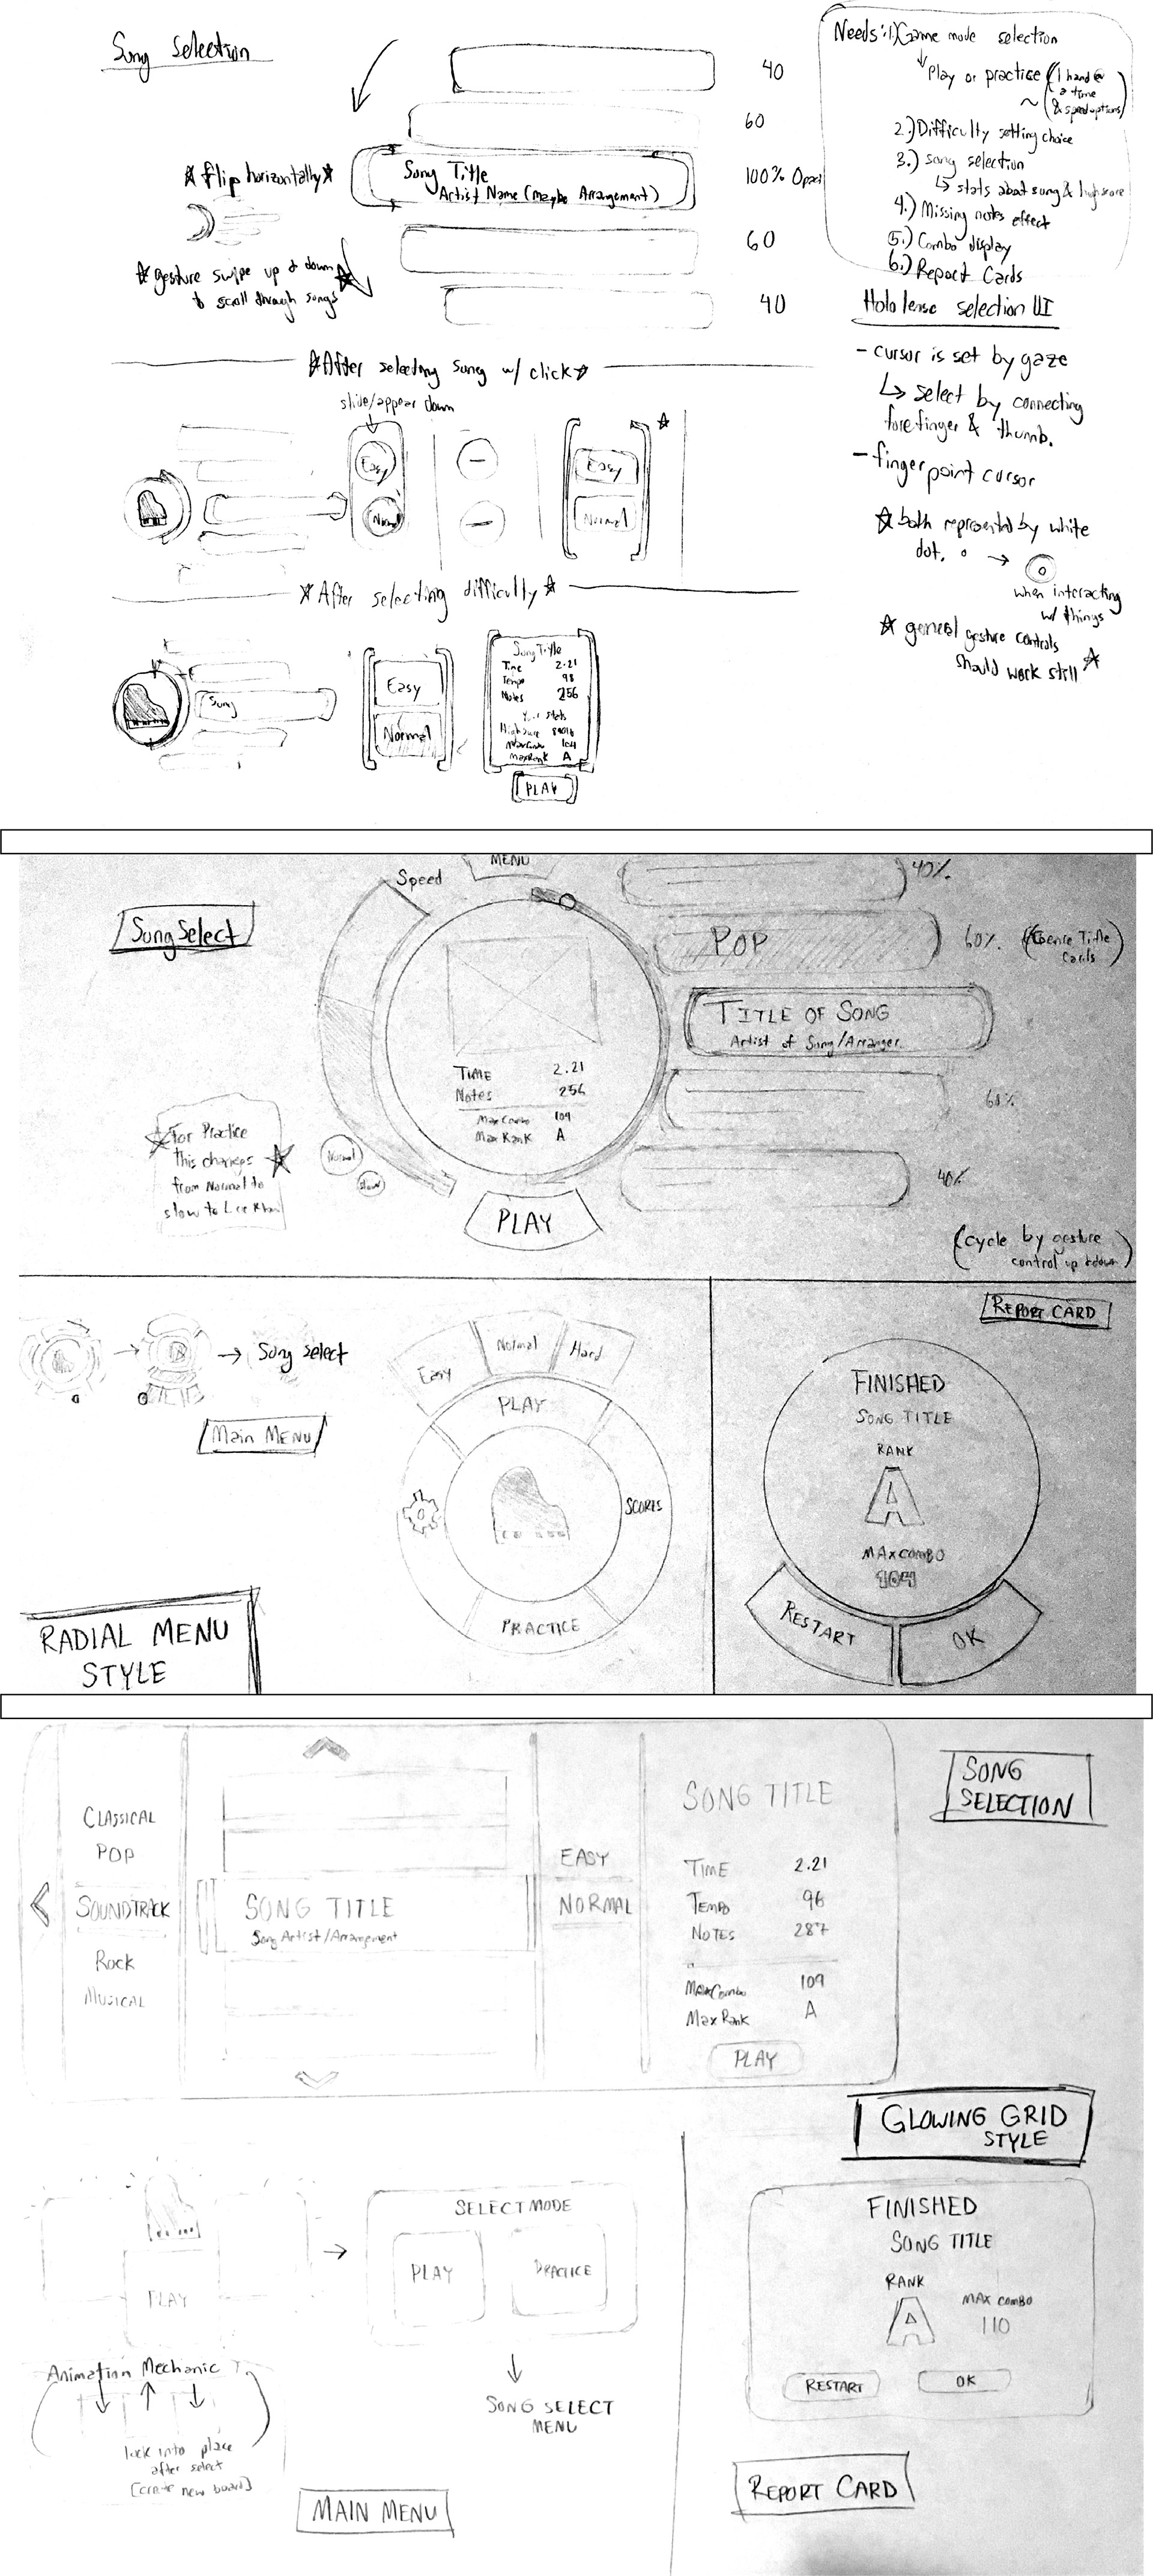 Song Selection
40
60
☆ flip horizontally ☆
Song Title
Artist Name (Maybe Arrangement)
100% Opac
60
☆ gesture swipe up & down ☆
to scroll through songs
40
Needs: 1.) Game mode selection
Play or practice (1 hand @
a time
& speed options)
2.) Difficulty setting choice
3.) song selection
↳ stats about song & highscore
4.) Missing notes effect
5.) Combo display
6.) Report Cards
Hololense selection UI
- cursor is set by gaze
↳ select by connecting
forefinger & thumb.
- finger point cursor
☆ both represented by white
dot. →
when interacting
w/ things
☆ general gesture controls
should work still ☆
☆ After selecting song w/ click ☆
slide/appear down
Easy
Normal
Easy
Normal
☆ After selecting difficulty ☆
Song
Easy
Normal
Song Title
Time 2.21
Tempo 98
Notes 256
Your stats
High Score
Max Combo 104
Max Rank A
PLAY
Song Select
Speed
MENU
40%
POP
60% (Genre Title
Cards)
TITLE OF SONG
Artist of Song/Arranger
TIME 2.21
Notes 256
Max Combo 109
Max Rank A
60%
40%
☆ For Practice ☆
this changes
from Normal to
slow to
Normal
Slow
PLAY
(cycle by gesture
control up & down)
→ → Song select
Main MENU
Easy
Normal
Hard
PLAY
SCORES
PRACTICE
RADIAL MENU
STYLE
REPORT CARD
FINISHED
SONG TITLE
RANK
A
MAX COMBO
104
RESTART
OK
CLASSICAL
POP
SOUNDTRACK
Rock
MUSICAL
SONG TITLE
Song Artist/Arrangement
EASY
NORMAL
SONG TITLE
TIME 2.21
TEMPO 96
NOTES 287
Max Combo 109
Max Rank A
PLAY
SONG
SELECTION
GLOWING GRID
STYLE
PLAY
→
SELECT MODE
PLAY
PRACTICE
Animation Mechanic
↓ ↑ ↓
lock into place
after select
[create new board]
↓
SONG SELECT
MENU
MAIN MENU
FINISHED
SONG TITLE
RANK
A
MAX COMBO
110
RESTART
OK
REPORT CARD